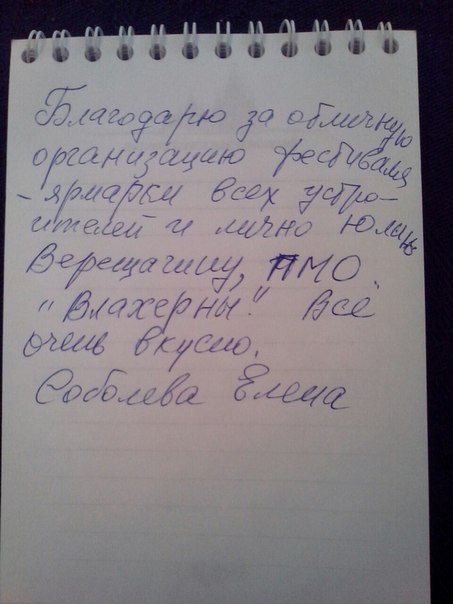 Благодарю за обличную
организацию фестиваля
- ярмарки всех устро-
ителей и лично Юлию
Верещагину, ПМО
"Влахерны". Всё
очень вкусно.
Соболева Елена